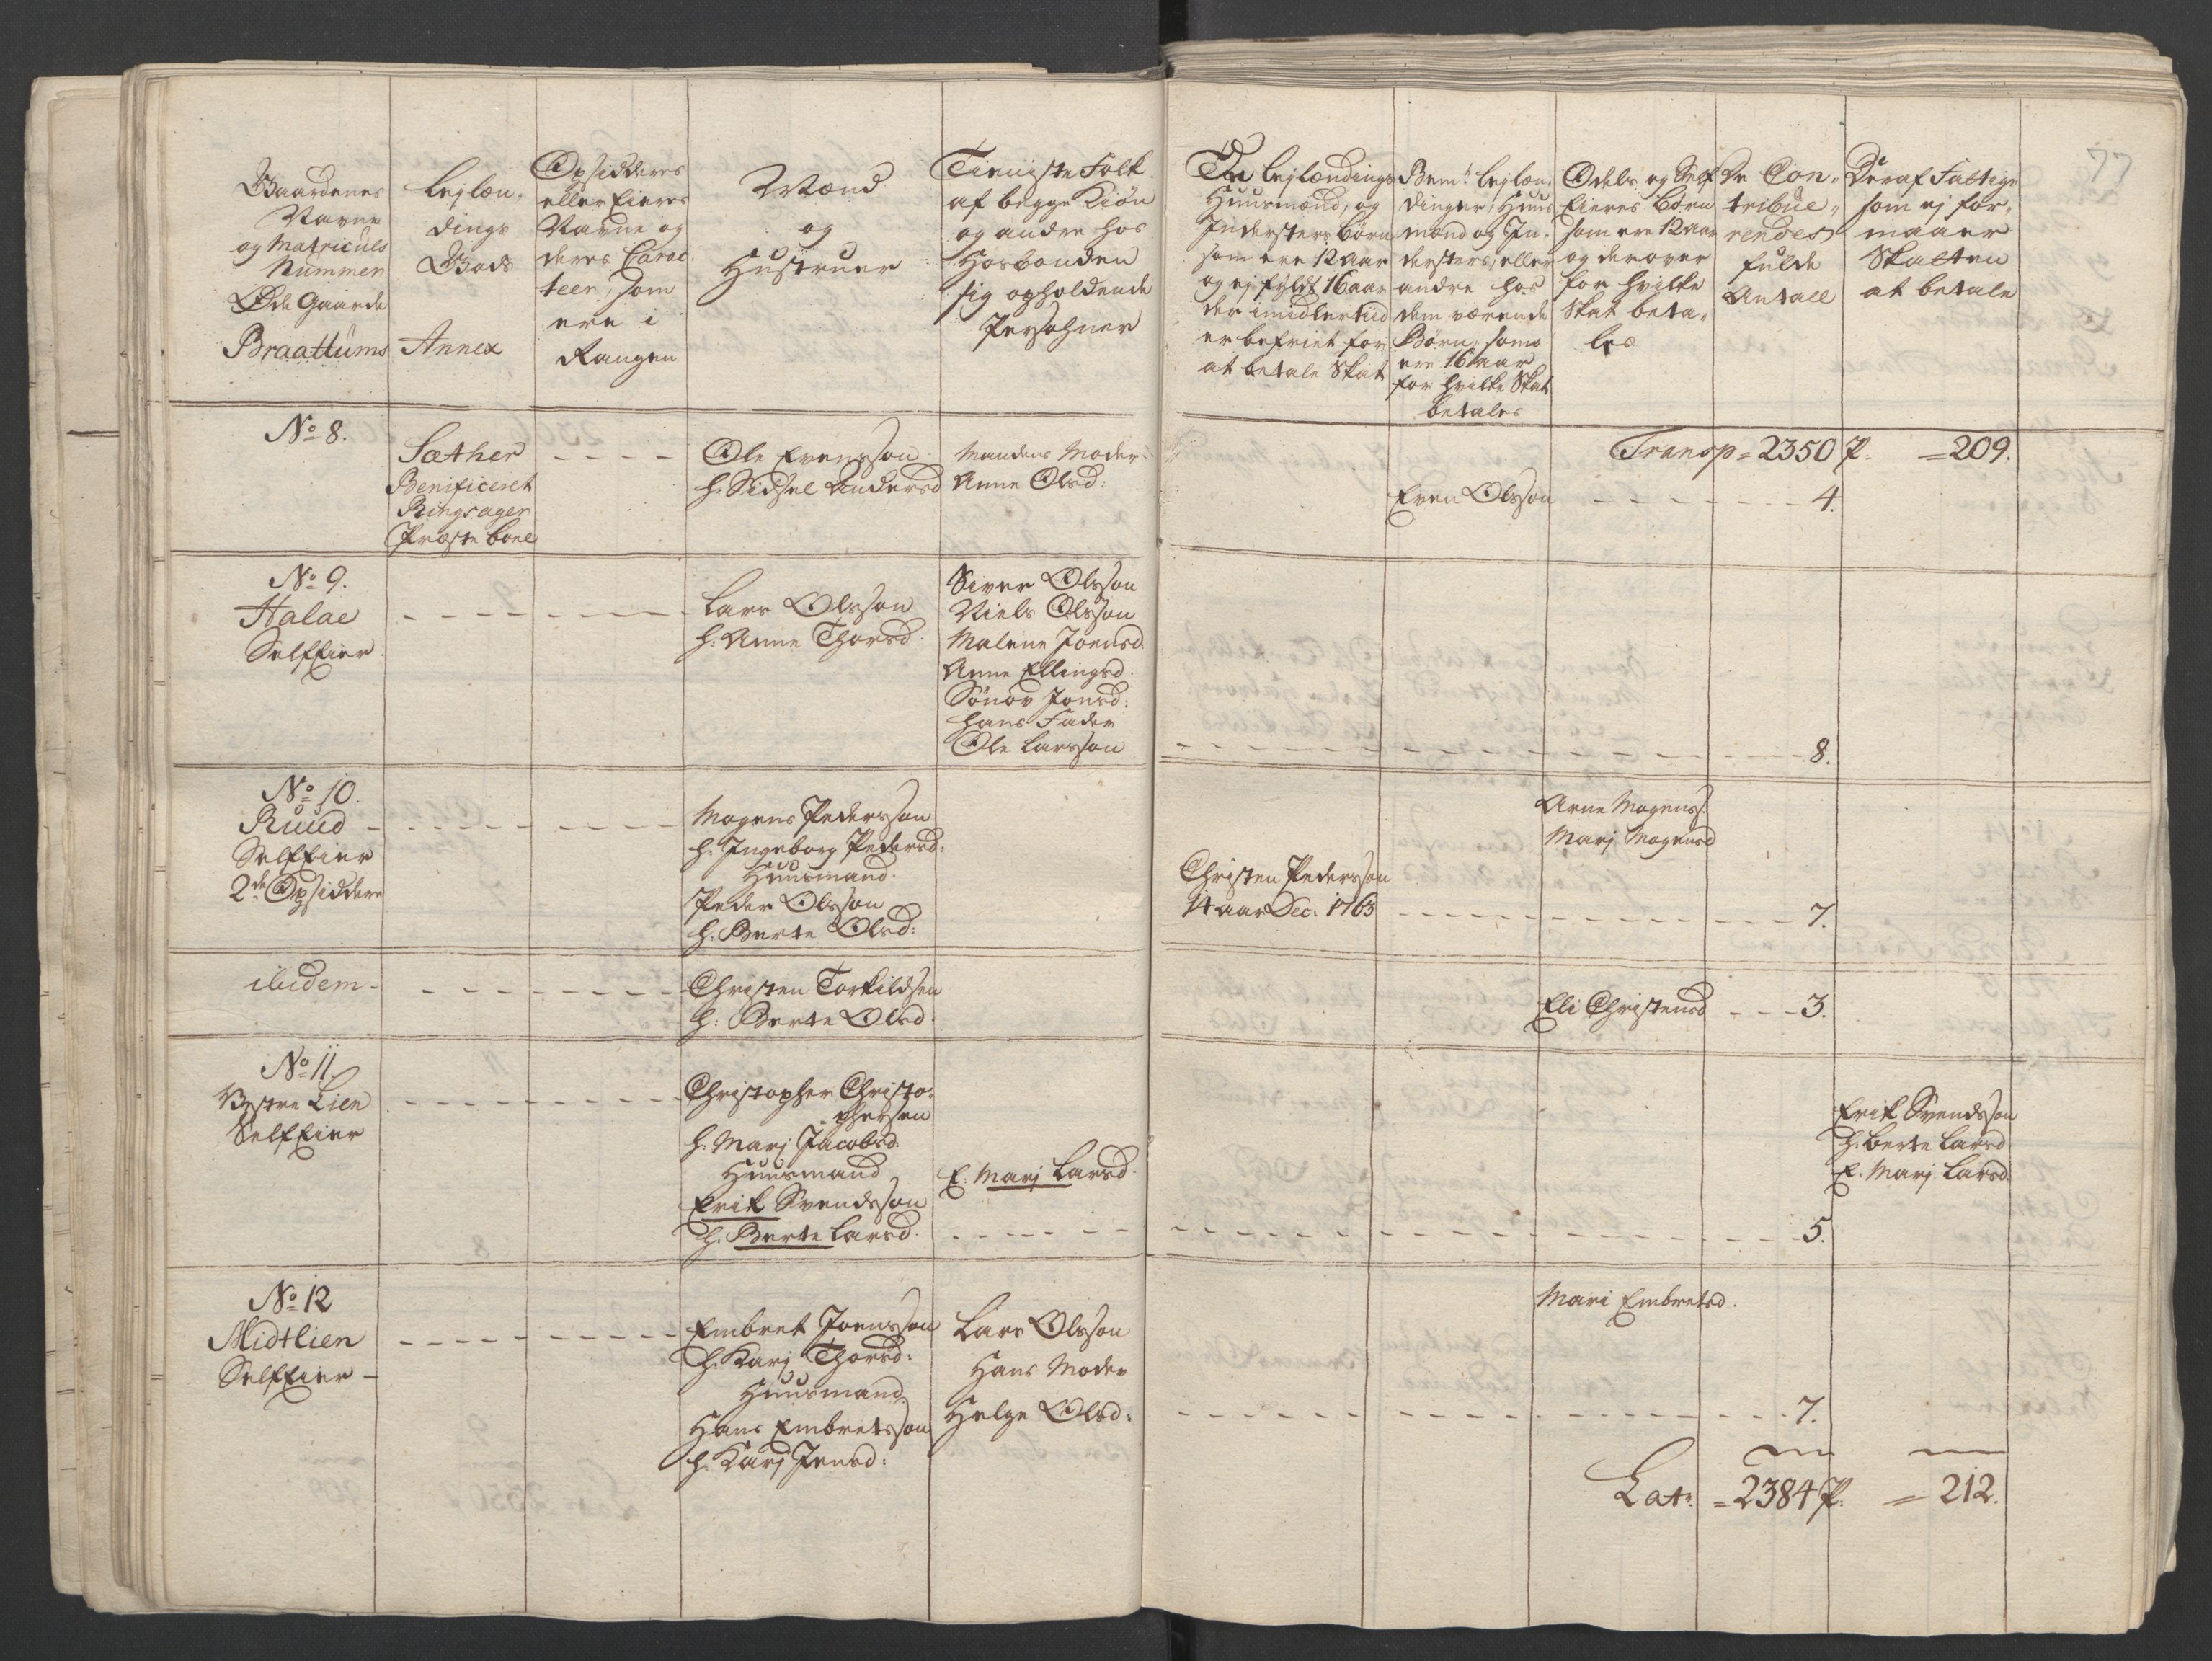 77
Gaardenes
Navne
og Matriculs
Nummer
Øde Gaarde
Braattums
Lejlæn-
dings
Gods
Annex
Opsidderes
eller Eieres
Navne og
deres Carac-
teer, som
ere i
Rangen
Mænd
og
Hustruer
Tieniste Folk
af begge Kiøn
og andre hos
Hosbonden
sig opholdende
Persohner
De Lejlændings
Huusmænd, og
Indersters Børn
som ere 12 aar
og ej fyldt 16 aar
der imidlertiid
er befriet for
at betale Skat
Bemte Lejlæn-
dinger, Huus
mænd og In-
dersters, eller
andre hos
dem værende
Børn, som
ere 16 aar
for hvilke Skat
betales
Odels og Self
Eieres Børn
som ere 12 aar
og derover
for hvilke
Skat beta-
les
De Con-
tribue-
rendes
fulde
Antall
Deraf Fattige
som ej for-
maaer
Skatten
at betale
Transp = 2350 P. = 209.
No 8.
Sæther
Benificeret
Ringsager
Præste boel
- - - -
Ole Evensson
h. Sidsel Andersd
Mandens Moder
Anne Olsd:
Even Olsson - - - - - - 4.
No 9.
Halae - - - - - -
Selfeier.
Lars Olsson
h: Anne Thorsd.
Siver Olsson
Niels Olsson
Malene Joensd.
Anne Ellingsd.
Sønov Jonsd:
hans Fader
Ole Larsson
- - - - - - - - 8.
No 10.
Ruud - - - - - -
Selfeier
2de Opsiddere
Mogens Pedersson
h. Ingeborg Pedersd:
Huusmand.
Peder Olsson
h. Berte Olsd:
Arne Mogenss.
Marj Mogensd
Christen Pedersson
14 aar Dec: 1763 - - - - - - - 7.
ibidem - - - - - -
Christen Torkildsen
h: Berte Olsd.
Eli Christensd - - - 3.
No 11
Vestre Lien - - - - - -
Selfeier
Christopher Christo-
phersen
h. Marj Jacobsd.
Huusmand
Erik Svendsson
h. Berte Larsd.
E. Marj Larsd.
- - - - - - - - - - 5.
Erik Svendsson
h. Berte Larsd
E. Marj Larsd.
No 12
Midtlien - - - - - -
Selfeier -
Embret Joensson
h. Karj Thorsd:
Huusmand
Hans Embretsson
h. Karj Jensd:
Lars Olsson
Hans Moder
Helge Olsd:
Mari Embretsd.
- - - - - - - - - 7.
Lat. = 2384 P. = 212.